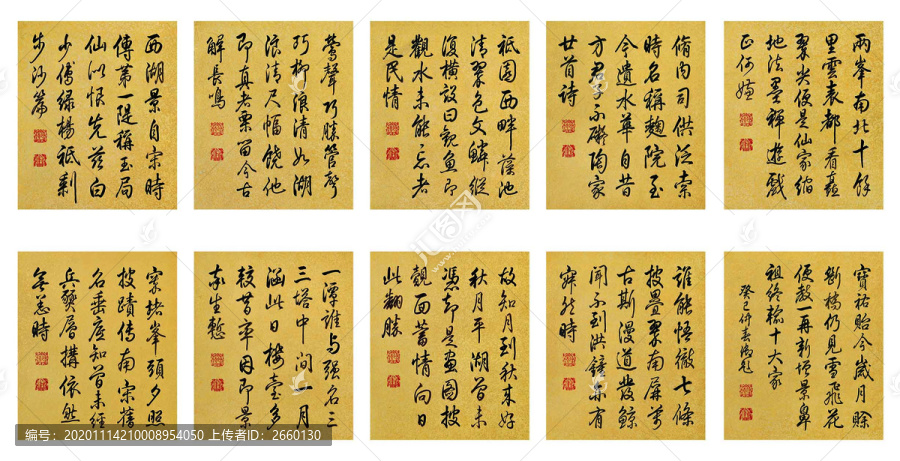 西湖景自宋時
傳第一隄稱玉局
仙以恨先茲白
少傅緑楊祇剩
步沙篇
鶯聲巧勝管聲
巧柳浪清如湖
浪清尺幅饒他
即真者栗留今古
解長鳴
祗園西畔蔭池
清翠色文鱗縱
復横設曰觀魚即
觀水未能忘者
是民情
脩内司供泛索
時名稱麯院至
今遺水華自昔
方君子不礙陶家
廿首詩
兩峯南北十餘
里雲表都看矗
翠尖便是仙家縮
地法墨禪遊戲
正何嫌
窣堵峯頭夕照
披蹟傳南宋舊
名垂虛知曾未經
兵燹層構依然
無恙時
一潭誰与强名三
三塔中間一月
涵此日樓臺多
較昔率因即景
爲生慙
故知月到秋来好
秋月平湖曾未
憑却是畫圖披
覿面蓄情向日
此翻勝
誰能悟徹七條
披疊翠南屏萬
古斯漫道發鯨
聞不到洪鐘無有
寂然時
寶祐貽今歲月賖
斷橋仍見雪飛花
便教一再新增景鼻
祖終輸十大家
癸巳仲春御題
编号:20201114210008954050 上传者ID:2660130